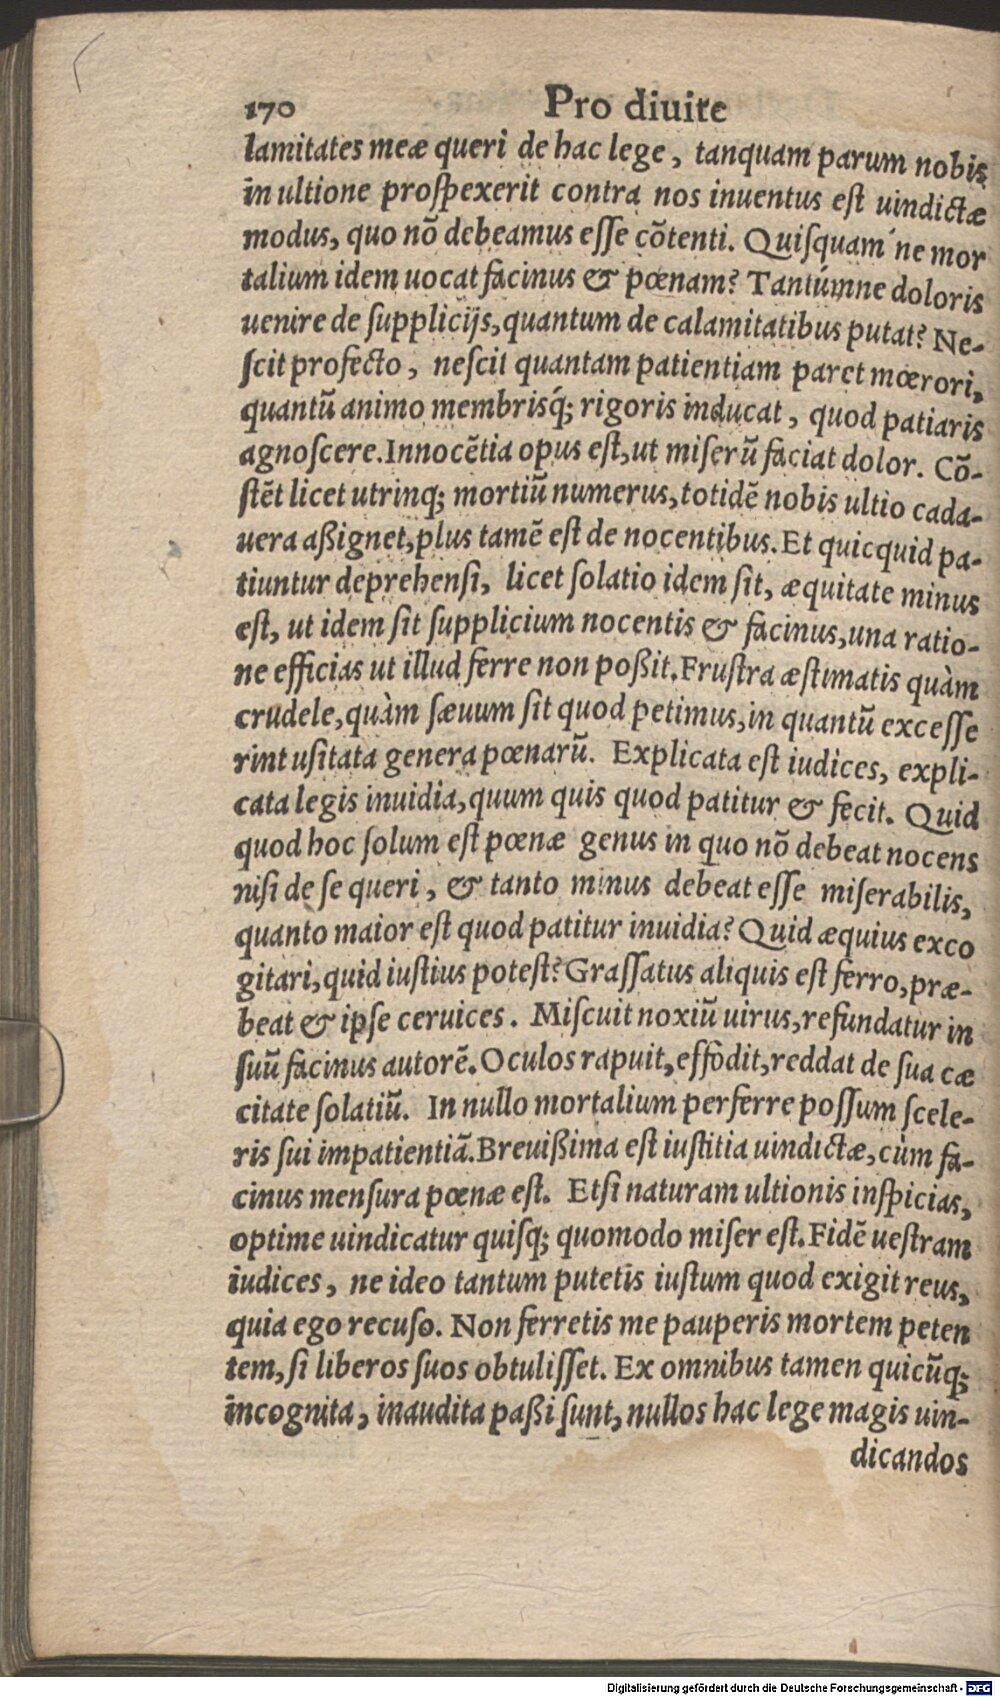 170 Pro diuite
lamitates meæ queri de hac lege, tanquam parum nobis
in ultione proſpexerit contra nos inuentus eſt uindictæ
modus, quo nõ debeamus eſſe cõtenti. Quiſquam´ne mor
talium idem uocat facinus & pœnam? Tantúmne doloris
uenire de ſupplicijs, quantum de calamitatibus putat? Ne-
ſcit profecto, neſcit quantam patientiam paret mœrori,
quantũ animo membrisq́; rigoris inducat, quod patiaris
agnoſcere. Innocẽtia opus eſt, ut miſerũ faciat dolor. Cõ-
ſtẽt licet utrinq; mortiũ numerus, totidẽ nobis ultio cada-
uera aßignet, plus tamẽ eſt de nocentibus. Et quicquid pa-
tiuntur deprehenſi, licet ſolatio idem ſit, æquitate minus
eſt, ut idem ſit ſupplicium nocentis & facinus, una ratio-
ne efficias ut illud ferre non poßit. Fruſtra æſtimatis quàm
crudele, quàm ſæuum ſit quod petimus, in quantũ exceſſe
rint uſitata genera pœnarũ. Explicata eſt iudices, expli-
cata legis inuidia, quum quis quod patitur & fecit. Quid
quod hoc ſolum eſt pœnæ genus in quo nõ debeat nocens
niſi de ſe queri, & tanto minus debeat eſſe miſerabilis,
quanto maior eſt quod patitur inuidia? Quid æquius exco
gitari, quid iuſtius poteſt? Graſſatus aliquis eſt ferro, præ-
beat & ipſe ceruices. Miſcuit noxiũ uirus, refundatur in
ſuũ facinus autorẽ. Oculos rapuit, effodit, reddat de ſua cæ
citate ſolatiũ. In nullo mortalium perferre poſſum ſcele-
ris ſui impatientiã. Breuißima eſt iuſtitia uindictæ, cùm fa-
cinus menſura pœnæ eſt. Etſi naturam ultionis inſpicias,
optime uindicatur quiſq; quomodo miſer eſt. Fidẽ ueſtram
iudices, ne ideo tantum putetis iuſtum quod exigit reus,
quia ego recuſo. Non ferretis me pauperis mortem peten
tem, ſi liberos ſuos obtuliſſet. Ex omnibus tamen quicũq;
incognita, inaudita paßi ſunt, nullos hac lege magis uin-
dicandos
Digitalisierung gefördert durch die Deutsche Forschungsgemeinschaft - DFG